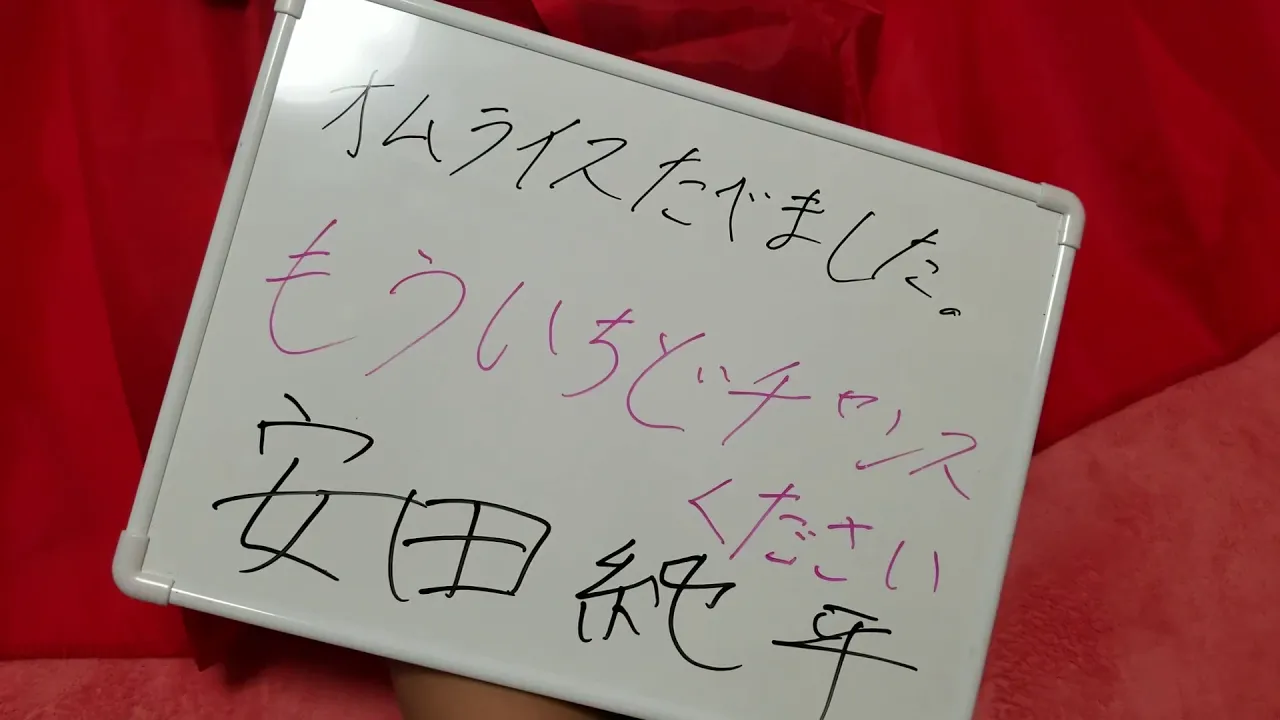 オムライスたべました。
もういちどチャンス
ください
安田純平